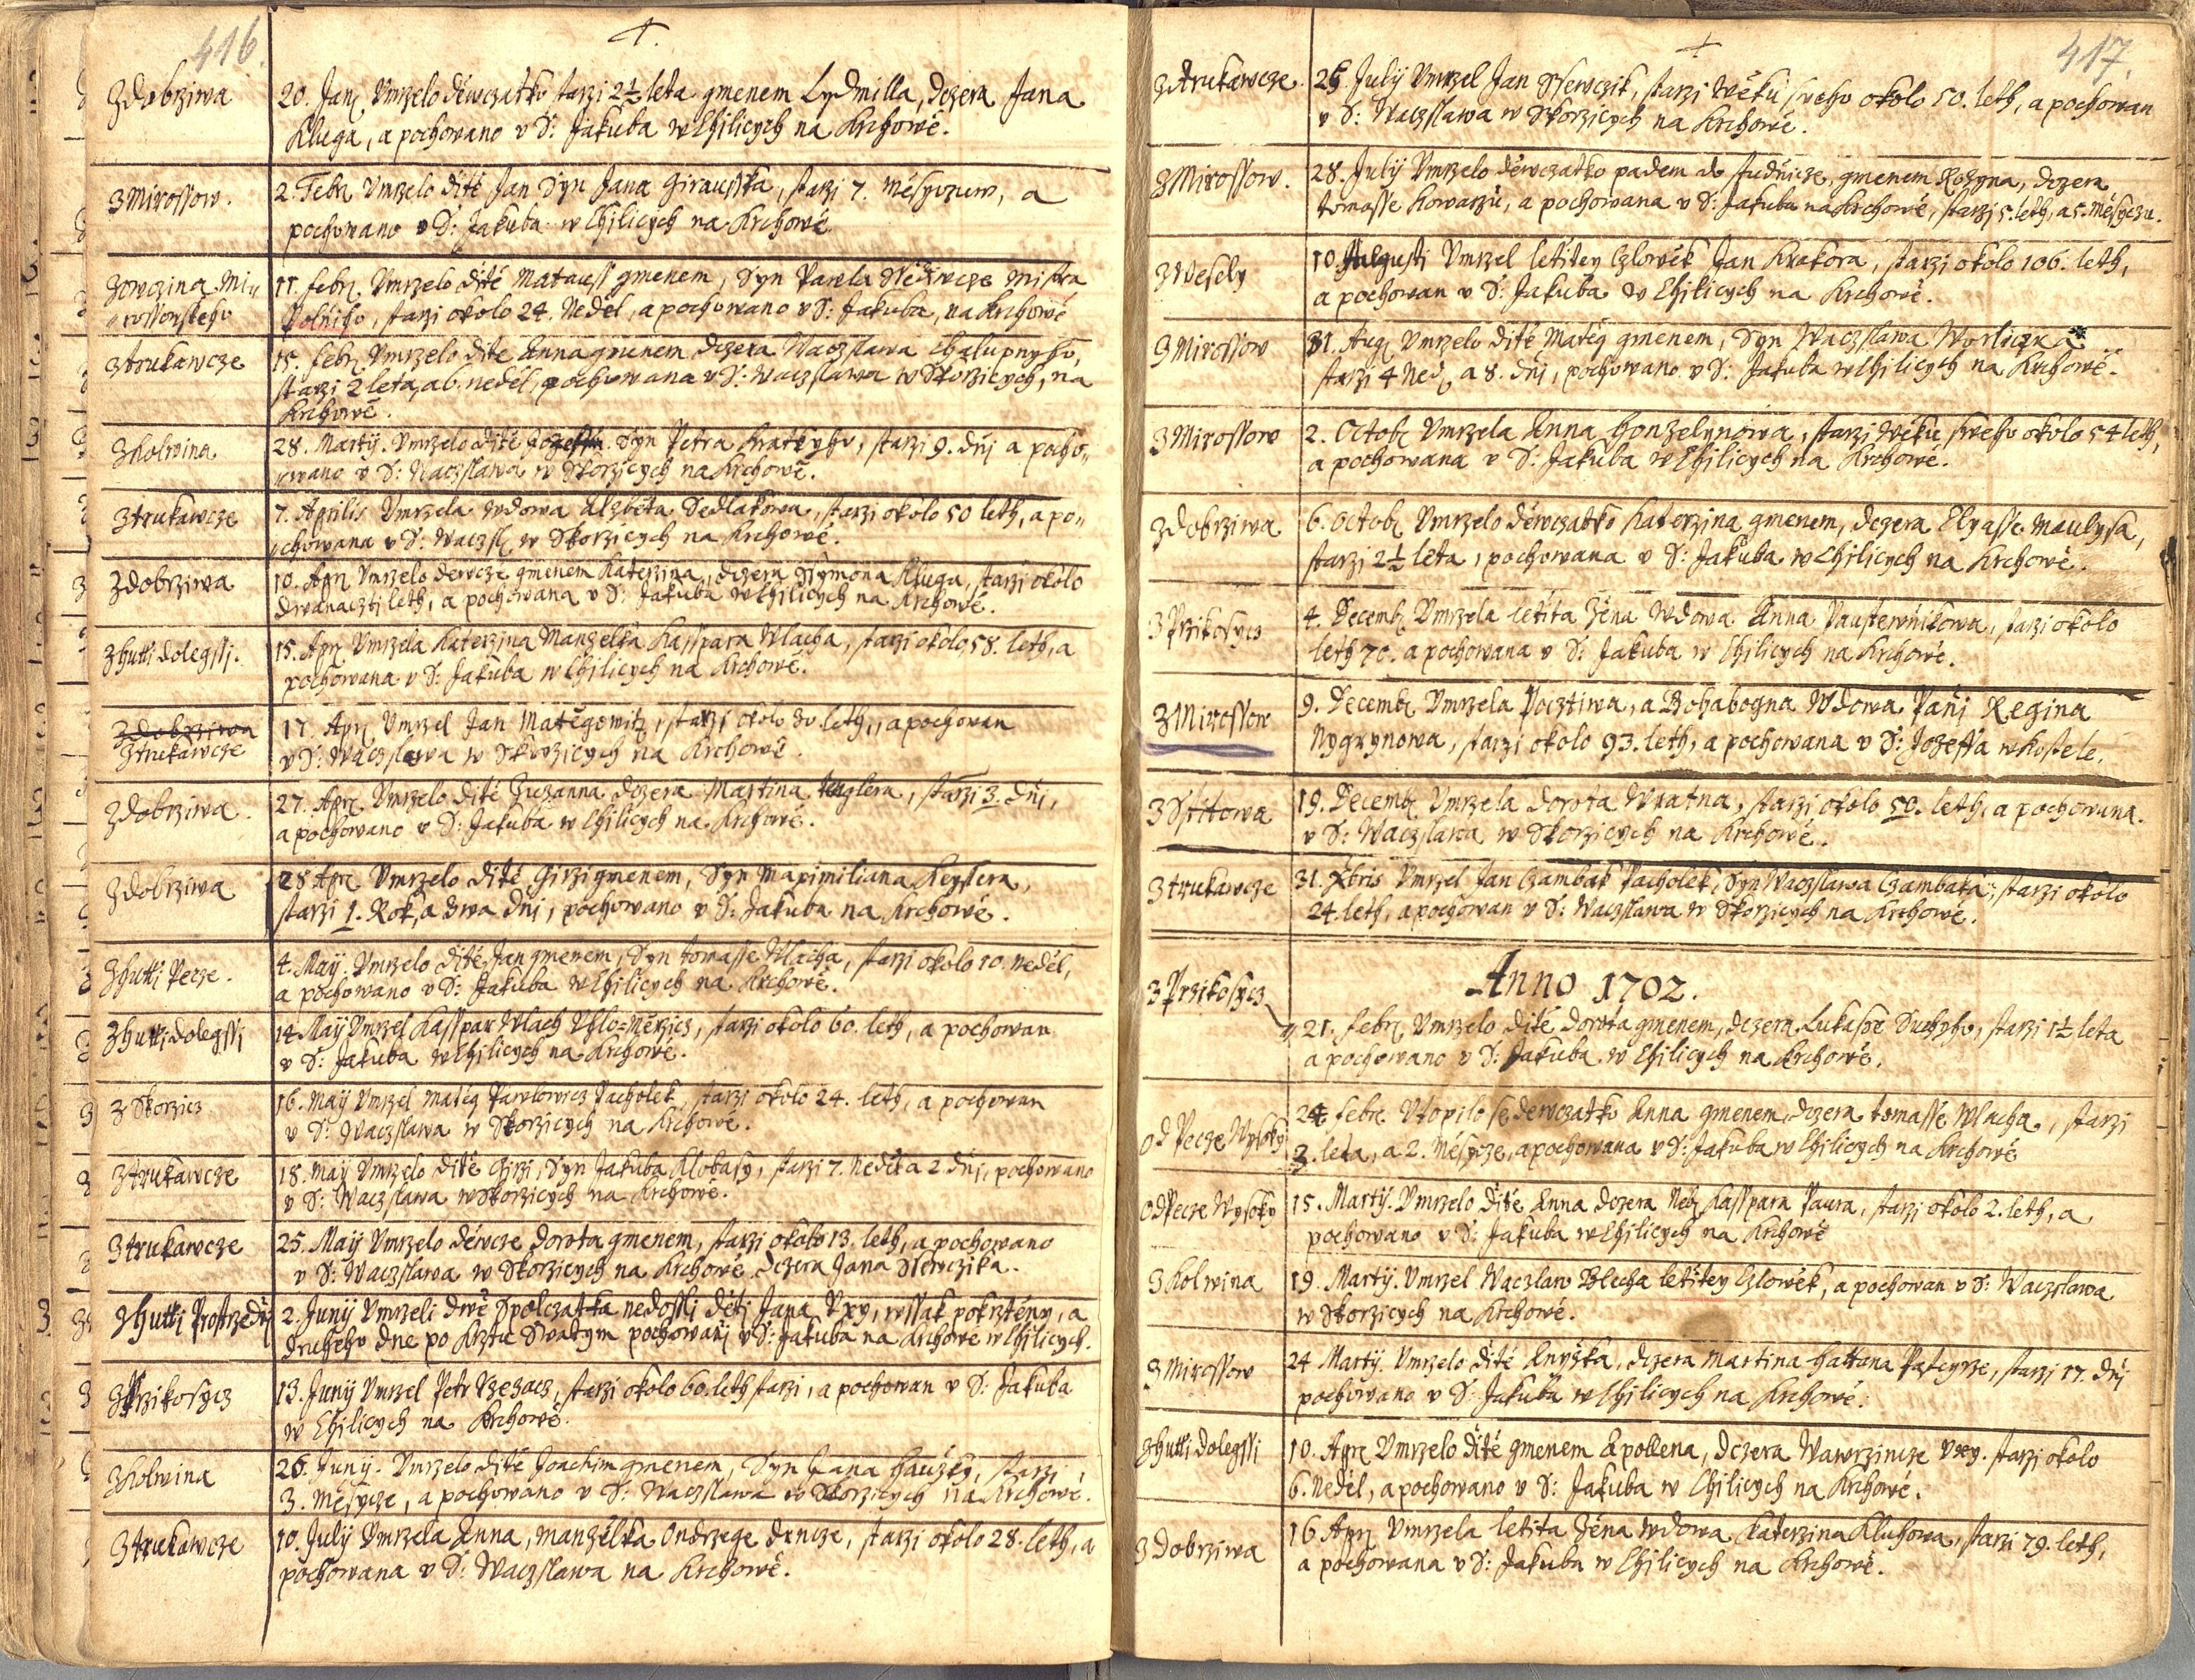 416.
†.
Zdobrziwa
20. Janʒ Vmrzelo děwczatko starzi 2½ leta gmenem Lydmilla, dczera Jana
Kluga, a pochowano v S: Jakuba w Chilicych na Krchowě.
Z Mirossow.
2. Febrʒ Vmrzelo ditě Jan Syn Jana Girausska, starzi 7. Měsyczuw, a
pochowano v S: Jakuba w Chilicych na Krchowě
Zowczina Mi„
„rossowskeho
11. febrʒ Vmrzelo ditě Matauss gmenem, Syn Pawla Mistra
Polniho, starzi okolo 24. Neděl, a pochowano v S: Jakuba, na Krchowě
Ztrukawcze
15. febrʒ Vmrzelo dite Anna gmenem dczera Waczslawa Chalupnyho,
starzi 2 leta, a 6. neděl, pochowana v S: Waczslawa w Skorzicych, na
Krchowě.
Zkolwina
28. Martij. Vmrzelo ditě Syn Petra Kratkyho, starzi 9. dnj a pocho„
„wano v S: Waczslawa w Skorzicych na Krchowě.
Ztrukawcze
7. Aprilis Vmrzela wdowa Alzběta Sedlakowa, starzi okolo 50 leth, a po„
„chowana v S: Waczsl: w Skorzicych na Krchowě.
Zdobrziwa
10. Aprʒ Vmrzelo dewcze gmenem Katerzina, dczera Ssymona Kluga, starzi okolo
dwanaczti leth, a pochowana v S: Jakuba w Chilicych na Krchowě.
Zhutti dolegssi.
15. Aprʒ Vmrzela Katerzina Manzelka Kasspara Wlacha, starzi okolo 58. leth, a
pochowana v S: Jakuba w Chilicych na Krchowě.
Zdobrziwa
Ztrukawcze
17. Aprʒ Vmrzel Jan Matěgowitz, starzi okolo 30. leth, a pochowan
v S: Waczslawa w Skorzicych na Krchowě.
Zdobrziwa.
27. Aprʒ Vmrzelo ditě Zuzanna dczera Martina, starzi 3. dni,
a pochowano v S: Jakuba w Chilicych na Krchowě.
Zdobrziwa
28 Aprʒ Vmrzelo ditě Girzi gmenem, Syn Maximiliana Keyslera,
starzi 1. Rok, a dwa dni, pochowano v S: Jakuba na Krchowě.
Zhutti Pecze.
4. Maij. Vmrzelo ditě Jan gmenem, Syn tomasse Wlacha, starzi okolo 10. neděl,
a pochowano v S: Jakuba w Chilicych na Krchowě.
Zhutti dolegssi
14 Maij Vmrzel Kasspar Wlach Vhlo=Měrzicz, starzi okolo 60. leth, a pochowan
v S: Jakuba w Chilicych na Krchowě.
Z Skorzicz
16. Maij Vmrzel Matěg Pawlowicz Pacholek, starzi okolo 24. leth, a pochowan
v S: Waczslawa w Skorzicych na Krchowě.
Ztrukawcze
18. Maij Vmrzelo ditě Girzi, Syn Jakuba Klobasy, starzi 7. Neděl a 2 dni, pochowano
v S: Waczslawa w Skorzicych na Krchowě.
Ztrukawcze
25. Maij Vmrzelo děwcze dorota gmenem, starzi okolo 13. leth, a pochowano
v S: Waczslawa w Skorzicych na Krchowě, dczera Jana Ssewczika.
Zhutti Prostrzedni
2. Junij Vmrzeli dwě Spolczatka nedossli děti Jana Vxy, wssak pokrztěny, a
druheho dne po Krztu Swatym pochowani v S: Jakuba na Krchowe w Chilicych.
Zprzikosycz
13. Junij Vmrzel Petr Rzezacz, starzi okolo 60. leth starzi, a pochowan v S: Jakuba
w Chilicych na Krchowě.
Zkolwina
26. Junij. Vmrzelo ditě Joachim gmenem, Syn Jana Hauzky, starzi
3. Měsycze, a pochowano v S: Waczslawa w Skorzicych na Krchowě.
Ztrukawcze
10. Julij Vmrzela Anna, manzělka Ondrzege, starzi okolo 28. leth, a
pochowana v S: Waczslawa na Krchowě.
417.
†
Ztrukawcze.
Julij Vmrzel Jan Ssewczik, starzi Wěku sweho okolo 50. leth, a pochowan
v S: Waczslawa w Skorzicych na Krchowě.
Z Mirossow.
28. Julij Vmrzelo děwczatko padem do studnicze, gmenem Rozyna, dczera
tomasse Kowarzu, a pochowana v S: Jakuba na Krchowě, starzi 5. leth, a 5. Měsyczu.
Z Wesely
10. Augusti Vmrzel letitey Czlowěk Jan Krakora, starzi okolo 106. leth,
a pochowan v S: Jakuba w Chilicych na Krchowě.
Z Mirossow
31. Augʒ Vmrzelo ditě Matěg gmenem, Syn Waczslawa Worliczka
starzi 4 Nedʒ a 8. dni, pochowano v S: Jakuba w Chilicych na Krchowě.
Z Mirossow
2. Octobʒ Vmrzela Anna Honzelynowa, starzi Wěku sweho okolo 54 leth,
a pochowana v S: Jakuba w Chilicych na Krchowě.
Zdobrziwa
6. Octobʒ Vmrzelo děwczatko Katerzina gmenem, dczera Elyasse Maulysa,
starzi 2½ leta, pochowana v S: Jakuba w Chilicych na Krchowě.
Z Przikosycz
4. Decembʒ Vmrzela letita Zěna Wdowa Anna Paustewnikowa, starzi okolo
leth 70. a pochowana v S: Jakuba w Chilicych na Krchowě.
Z Mirossow
9. Decembʒ Vmrzela Pocztiwa, a Bohabogna Wdowa Pañi Regina
Nygrynowa, starzi okolo 93. leth, a pochowana v S: Jozeffa w kostele.
Z Sstitowa
19. Decembʒ Vmrzela dorota Wratna, starzi okolo 50. leth, a pochowana
v S: Waczslawa w Skorzicych na Krchowě.
Ztrukawcze
31. Xbris Vmrzel Jan Czambak Pacholek, Syn Waczslawa Czambaka, starzi okolo
24. leth, a pochowan v S: Waczslawa w Skorzicych na Krchowě.
Anno 1702.
Z Przikosycz
21. febrʒ Vmrzelo ditě dorota gmenem, dczera Lukasse Suchyho, starzi 1½ leta
a pochowano v S: Jakuba w Chilicych na Krchowě.
Od Pecze Wysoky
24 febrʒ Vtopilo se dewczatko Anna gmenem, dczera tomasse Wlacha, starzi
3. leta, a 2. Měsycze, a pochowana v S: Jakuba w Chilicych na Krchowě
Od Pecze Wysoky
15. Martij. Vmrzelo ditě Anna dczera Nebʒ Kasspara Paura, starzi okolo 2. leth, a
pochowano v S: Jakuba w Chilicych na Krchowě
Z Kolwina
19. Martij. Vmrzel Waczlaw Blecha letitey Czlowěk, a pochowan v S: Waczslawa
w Skorzicych na Krchowě.
Z Mirossow
24 Martij. Vmrzelo ditě Anyžka, dczera Martina Hattana, starzi 17. dni
pochowano v S: Jakuba w Chilicych na Krchowě.
Zhutti Dolegssi
10. Aprʒ Vmrzelo ditě gmenem Apollena, dczera Wawrzincze Vxy. starzi okolo
6. Neděl, a pochowano v S: Jakuba w Chilicych na Krchowě.
Z Dobrziwa
16 Aprʒ Vmrzela letita Zěna wdowa Katerzina Kluhowa, starzi 79. leth,
a pochowana v S: Jakuba w Chilicych na Krchowě.